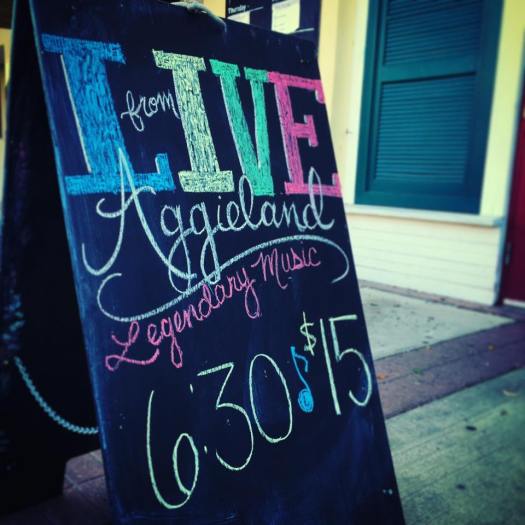 Thursday
LIVE
from
Aggieland
Legendary Music
6:30 $15